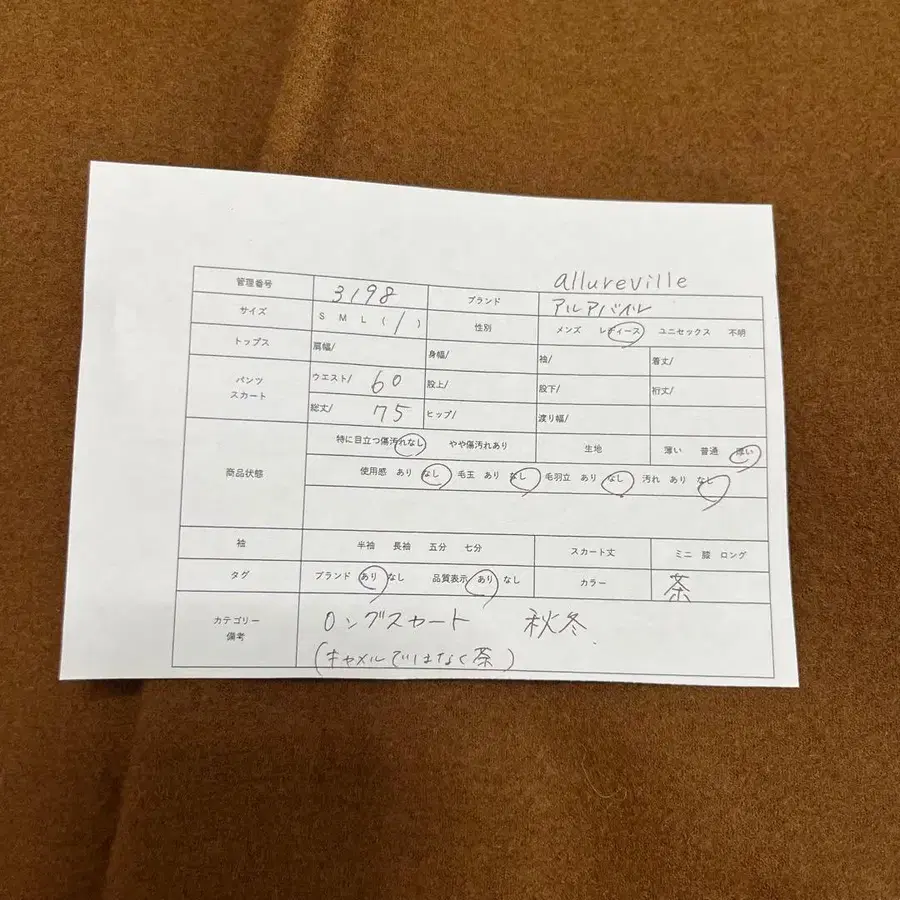 allureville
管理番号 3198 ブランド アルアバイル
サイズ S M L ( / ) 性別 メンズ レディース ユニセックス 不明
トップス 肩幅/ 身幅/ 袖/ 着丈/
パンツ スカート ウエスト/ 60 股上/ 股下/ 裄丈/
総丈/ 75 ヒップ/ 渡り幅/
商品状態 特に目立つ傷汚れなし やや傷汚れあり 生地 薄い 普通 厚い
使用感 あり なし 毛玉 あり なし 毛羽立 あり なし 汚れ あり なし
袖 半袖 長袖 五分 七分 スカート丈 ミニ 膝 ロング
タグ ブランド あり なし 品質表示 あり なし カラー 茶
カテゴリー 備考 ロングスカート 秋冬
(キャメルではなく茶)